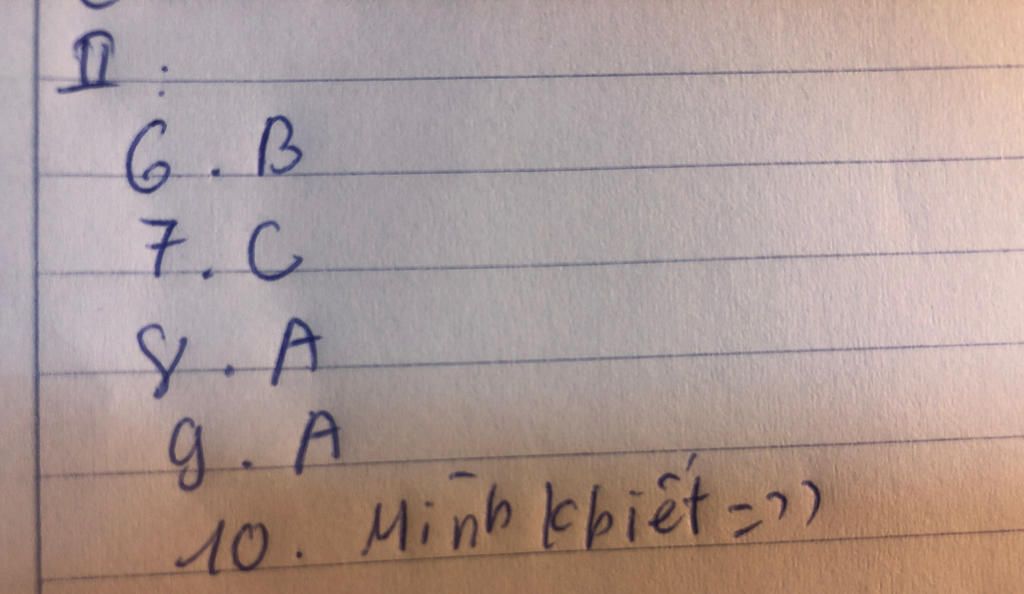 II :
6 . B
7 . C
8 . A
9 . A
10 . Mình k biết =))